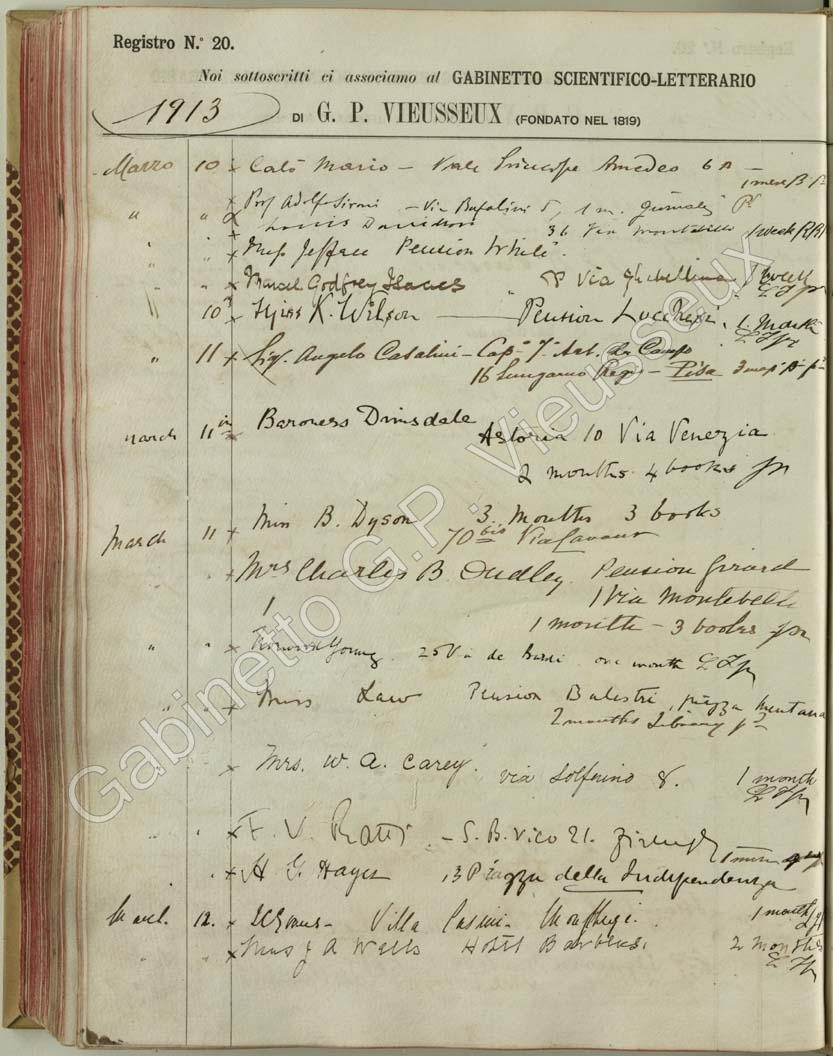 Registro N.° 20.
Noi sottoscritti ci associamo al GABINETTO SCIENTIFICO-LETTERARIO
1913 DI G. P. VIEUSSEUX (FONDATO NEL 1819)
Marzo 10 x Calò Mario – Viale Principe Amedeo 6 A –
1 mese
" " x Prof Adolfo – Via Bufalini 5, 1 m.
x Louis Davidson 36 Via Montebello 1 week
" " x Miss Jeffree Pension White.
" " x Marcel Godfrey Isaacs 58 Via Ghibellina 1 week
" 10 x Miss K. Wilson — Pension Lucchesi. 1. Month
" 11 x Sig. Angelo Casalini – Cap. Art. da Campo
16 Lungarno Regio – Pisa 3 mesi
March 11 x Baroness Dimsdale Astoria 10 Via Venezia
2 months 4 books
March 11 x Miss B. Dyson 3 Months 3 books
70 bis Via Cavour
" x Mrs Charles B. Dudley Pension Girard
1 1 Via Montebello
1 month – 3 books
" " x Young 25 Via de Bardi one month
" " x Miss Law Pension Balestri, piazza Mentana
2 months Library
x Mrs. W. A. Carey. via Solferino 8. 1 month
" " x F. V. Ratti. – S. B. Vico 21. Firenze
1 mese
" x H G. Hayes 13 Piazza della Indipendenza
March. 12. x Villa 1 month
" " x A Wells Hotel 2 months
Gabinetto G.P. Vieusseux